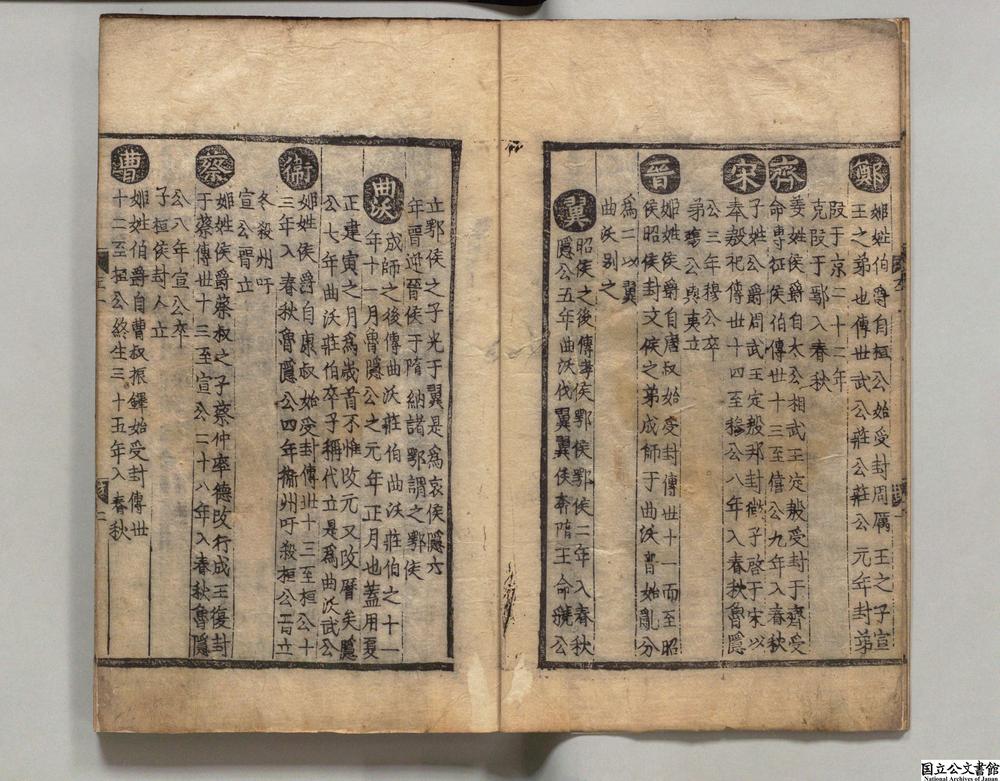 鄭
姬姓伯爵自桓公始受封周厲王之子宣
王之弟也傳世武公莊公莊公元年封弟
段于京二十二年
克段于鄢入春秋
齊
姜姓侯爵自太公相武王定殷受封于齊受
命專征侯伯傳世十三至僖公九年入春秋
宋
子姓公爵周武王定殷邦封微子啓于宋以
奉殷祀傳世十四至穆公八年入春秋魯隱
公三年穆公卒
弟殤公與夷立
晉
姬姓侯爵自唐叔始受封傳世十一而至昭
侯昭侯封文侯之弟成師于曲沃晉始亂分
為二以翼
曲沃别之
翼
昭侯之後傳孝侯鄂侯鄂侯二年入春秋
隱公五年曲沃伐翼翼侯奔隋王命虢公
立鄂侯之子光于翼是爲哀侯隱六
年晉迎晉侯于隋納諸鄂謂之鄂侯
曲沃
成師之後傳曲沃莊伯曲沃莊伯之十一
年十一月魯隱公之元年正月也蓋用夏
正建寅之月爲歲首不惟改元又改曆矣隱
公七年曲沃莊伯卒子稱代立是爲曲沃武公
衞
姬姓侯爵自康叔始受封傳世十三至桓公十
三年入春秋魯隱公四年衞州吁殺桓公晉立
冬殺州吁
宣公晋立
蔡
姬姓侯爵蔡叔之子蔡仲率德改行成王復封
于蔡傳世十三至宣公二十八年入春秋魯隱
公八年宣公卒
子桓侯封人立
曹
姬姓伯爵自曹叔振鐸始受封傳世
十二至桓公終生三十五年入春秋
国立公文書館
National Archives of Japan